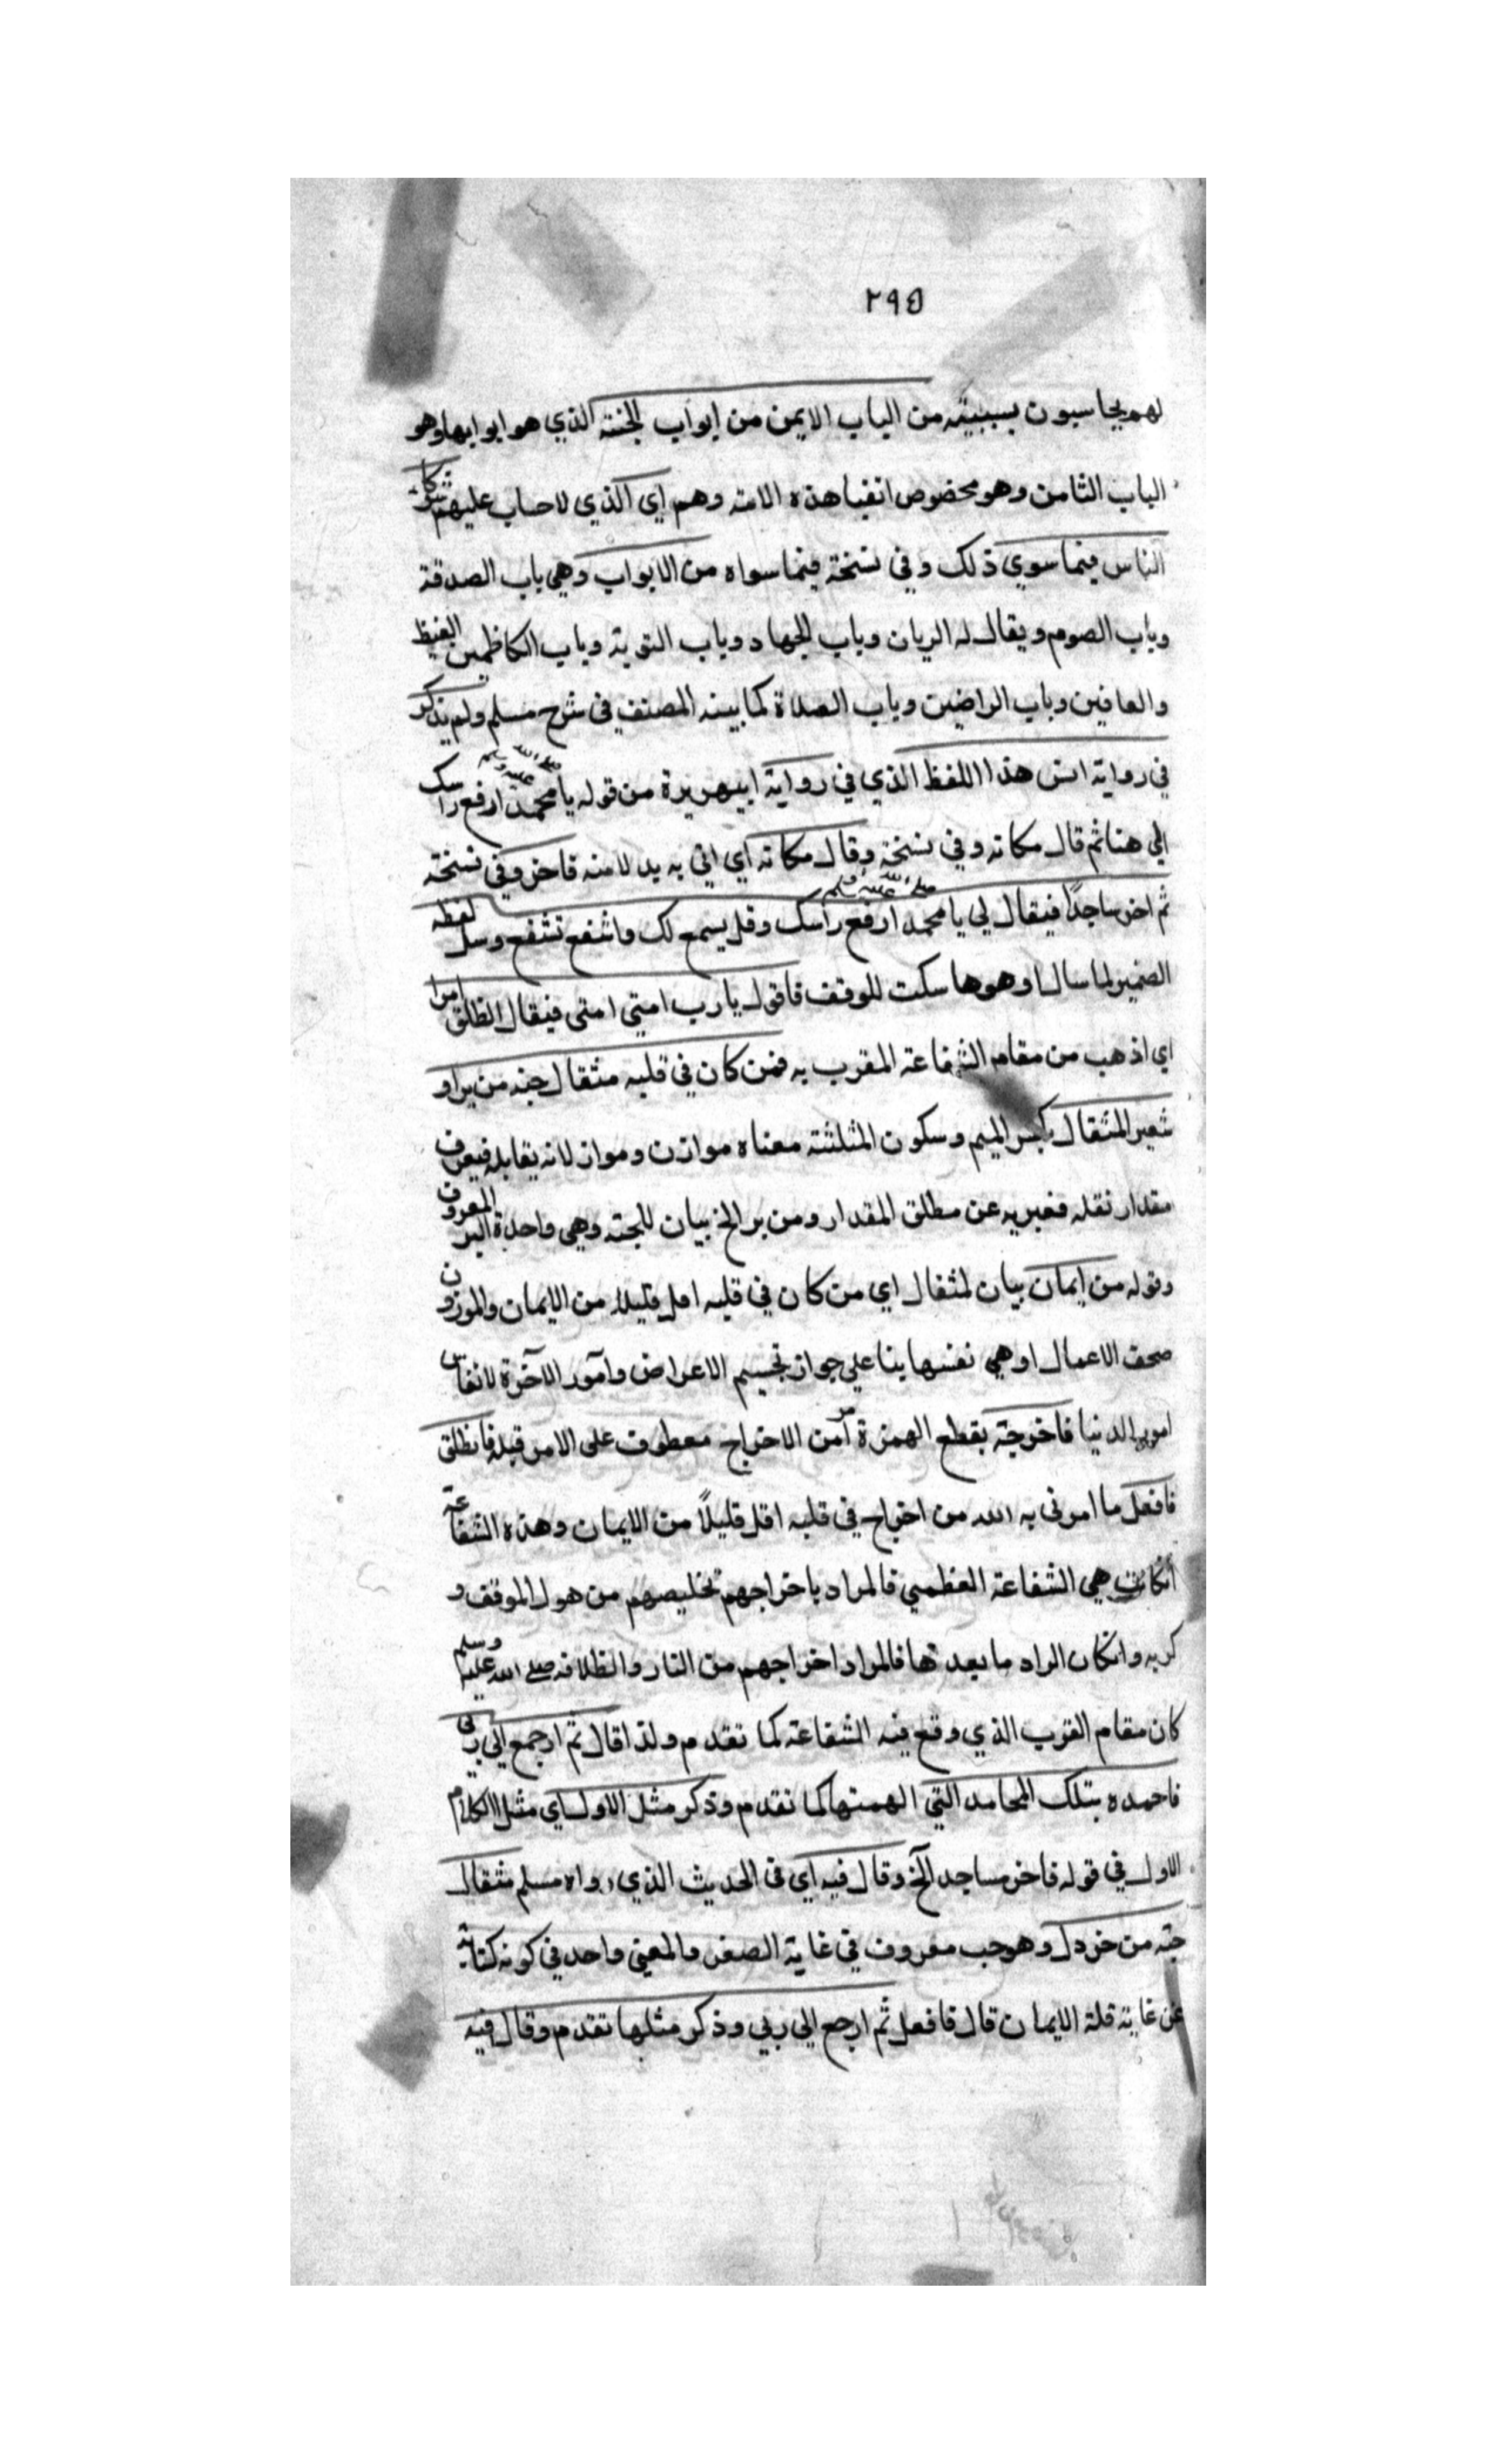 ٢٩٥
لهم يحاسبون بسببيته من الباب الايمن من ابواب الجنة الذي هو ابوابها وهو
الباب الثامن وهو مخصوص اتقيا هذه الامته وهم اي الذي لا حساب عليهم شركا
الناس فيما سوي ذلك وفي نسخة فيما سواه من الابواب وهي باب الصدقة
وباب الصوم ويقال له الريان وباب الجهاد وباب التوبة وباب الكاظمين الغيظ
والعافين وباب الراضين وباب الصلاة كما بينه المصنف في شرح مسلم ولم يذكر
في رواية انس هذا اللفظ الذي في رواية ابيهريرة من قوله يا محمد صلى الله عليه وسلم ارفع راسك
الي هنا ثم قال مكانه وفي نسخة وقال مكانه اي اتي به بدلا منه فاخر وفي نسخته
ثم اخر ساجدًا فيقال لي يا محمد صلى الله عليه وسلم ارفع رأسك وقل يسمع لك واشفع تشفع وسل لفظه
الضمير لما سال او هوها سكت للوقف فاقول يا رب امتي امتي فيقال انطلق امرا
اي اذهب من مقام الشفاعة المقرب به فمن كان في قلبه مثقال حبة من بر او
شعير المثقال بكسر الميم وسكون المثلثة معناه موازن ومواز لانه يقابله فيعرف
مقدار ثقله فعبر به عن مطلق المقدار ومن بر الخ بيان للحبته وهي واحدة البر المعروف
وقوله من ايمان بيان لمثقال اي من كان في قلبه اقل قليلا من الايمان والموزون
صحف الاعمال او هي نفسها بنا علي جواز تجسيم الاعراض وامور الآخرة لا تقاس
امور الدنيا فاخرجته بقطع الهمزة امر من الاخراج معطوف على الامر قبله فانطلق
فافعل ما امرني به الله من اخراج في قلبه اقل قليلاً من الايمان وهذه الشفاعة
أنكانت هي الشفاعة العظمي فالمراد باخراجهم تخليصهم من هول الموقف و
كربه وانكان الراد ما بعدها فالمراد اخراجهم من النار وانطلاقه صلى الله عليه وسلم
كان مقام القرب الذي وقع فيه الشفاعة كما تقدم ولذا قال ثم ارجع الي ربي
فاحمده بتلك المحامد التي الهمتها كما تقدم وذكر مثل الاول اي مثل الكلام
الاول في قوله فاخر ساجدا الخ وقال فيه اي في الحديث الذي رواه مسلم مثقال
حبة من خردل وهو حب معروف في غاية الصغر والمعني واحد في كونه كناية
عن غاية قلة الايمان قال فافعل ثم ارجع الي ربي وذكر مثلها تقدم وقال فيه